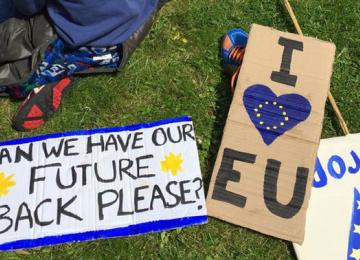 AN WE HAVE OUR
FUTURE
BACK PLEASE?
I
EU
JOJ